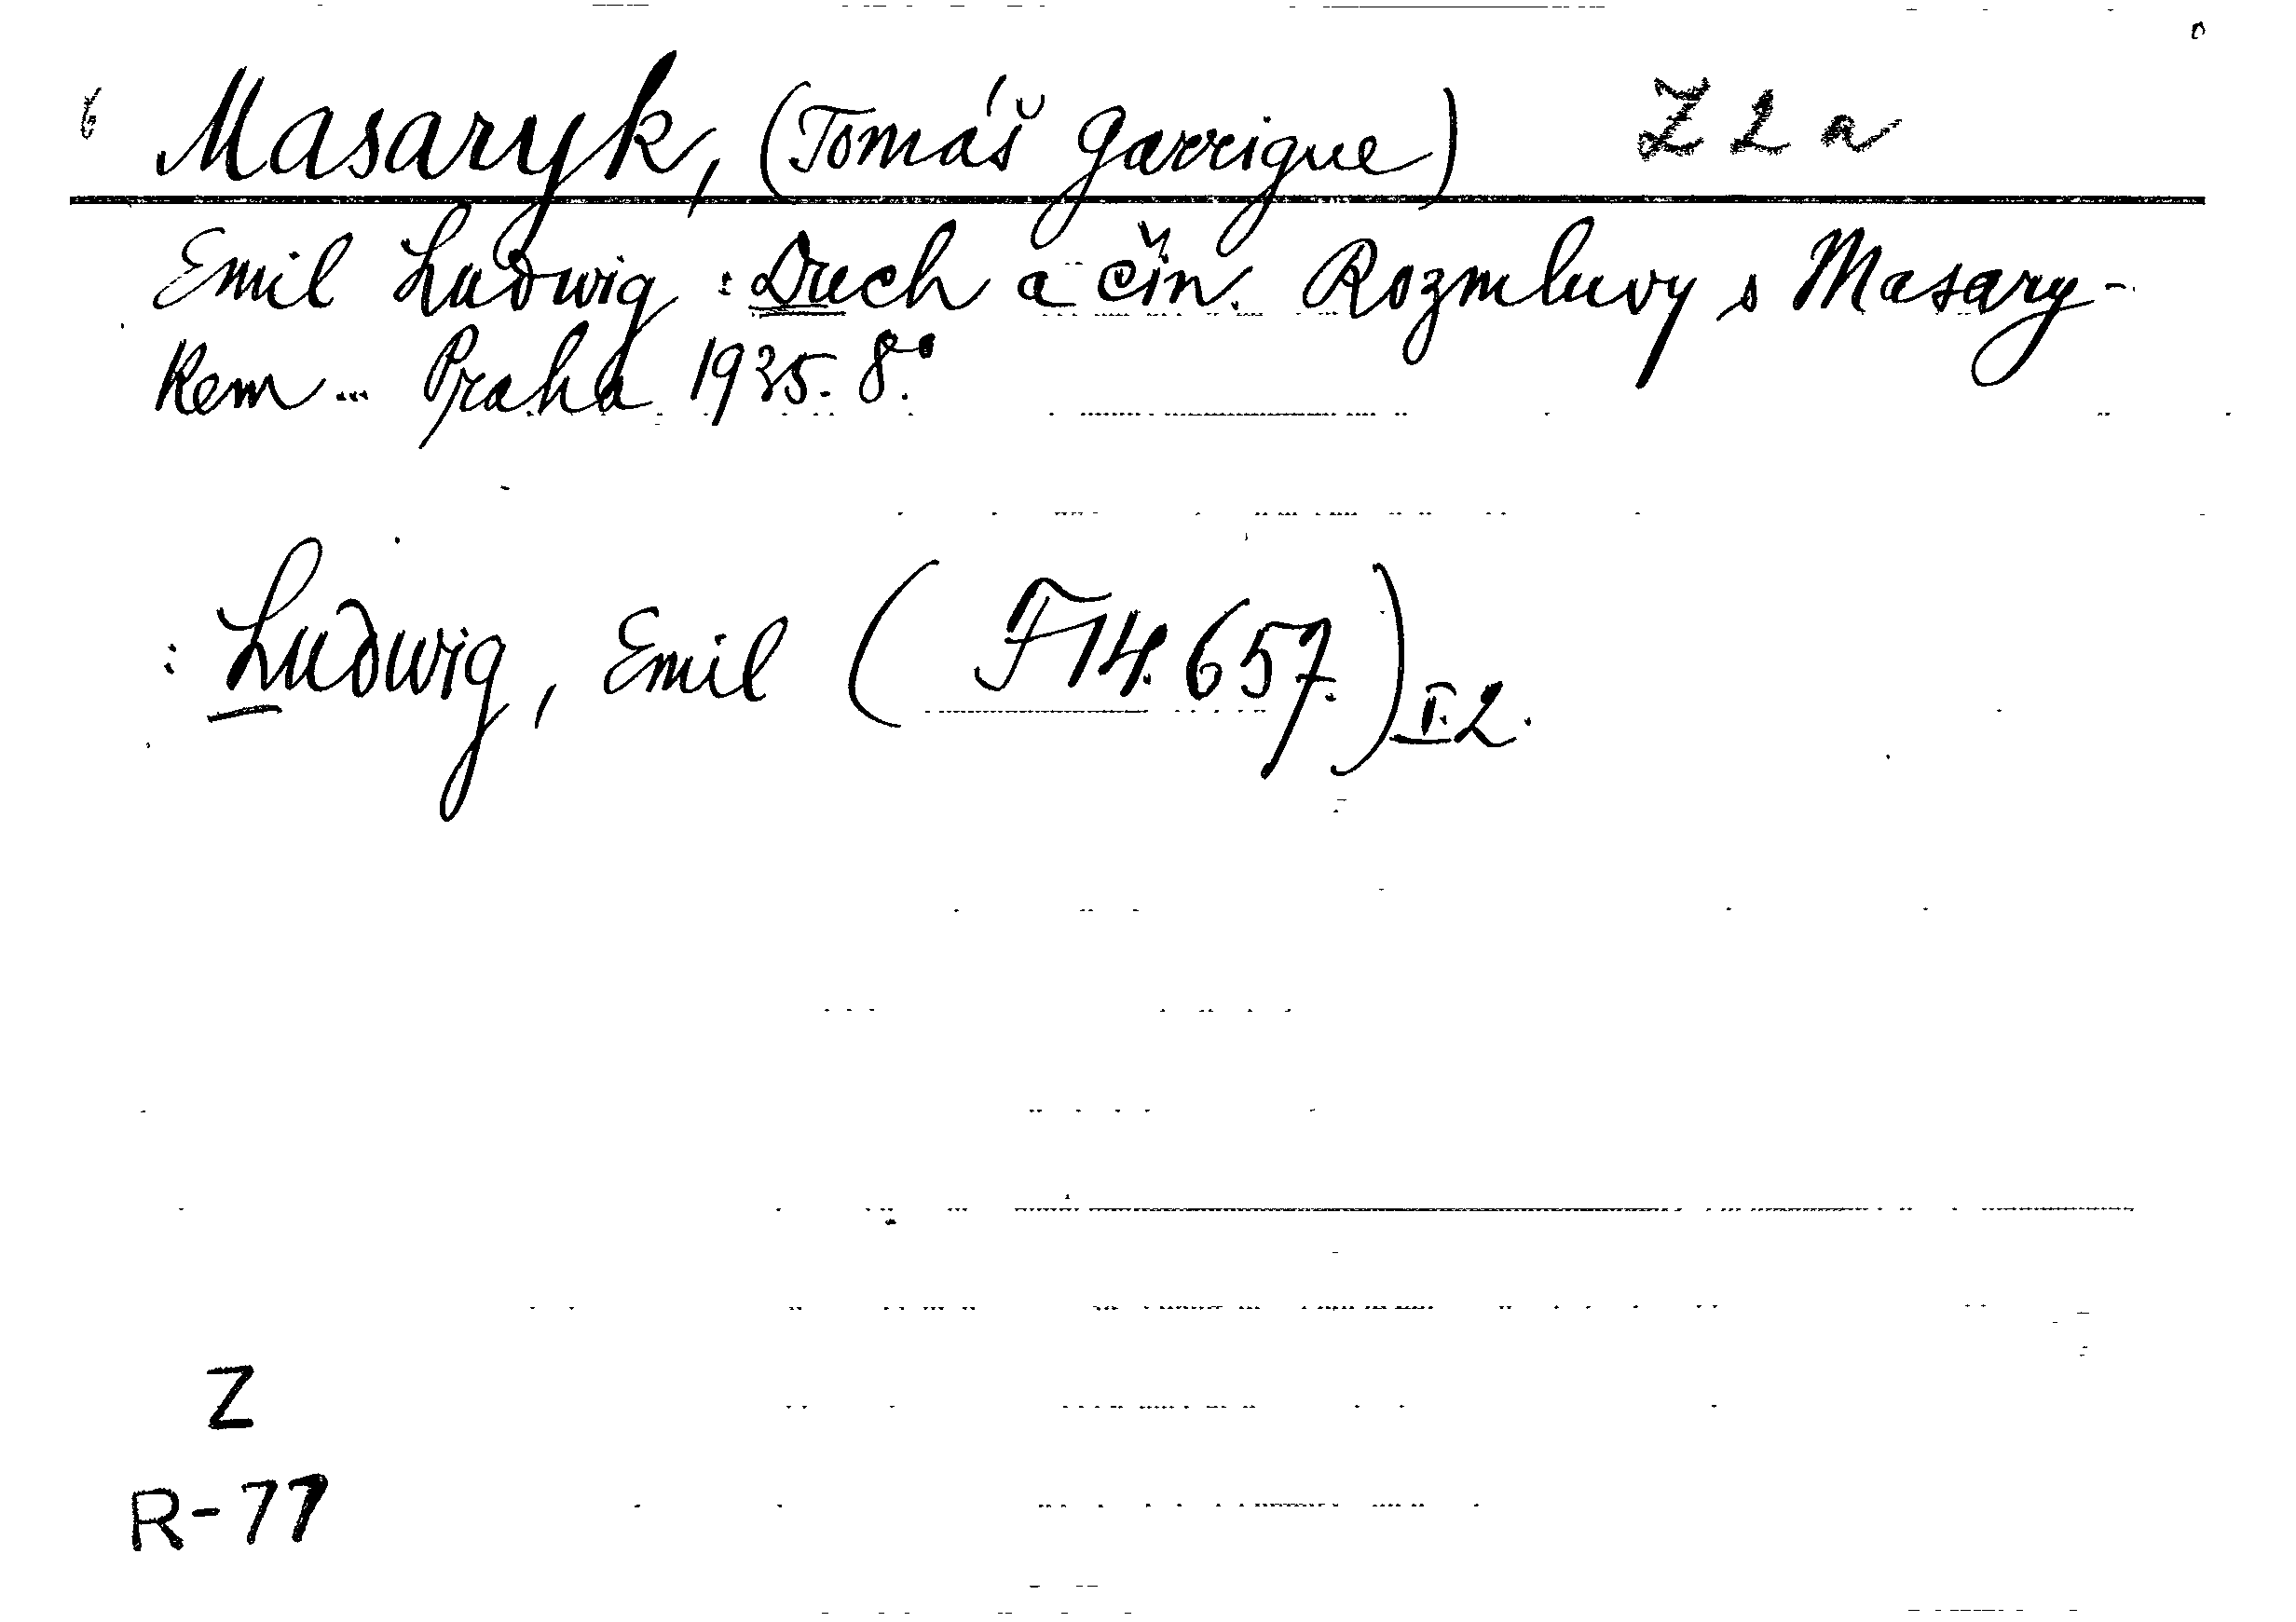 Masaryk, (Tomáš Garrigue) Z 2 a
Emil Ludwig : Duch a čin. Rozmluvy s Masary-
kem ... Praha 1935. 8.°
: Ludwig, Emil ( F 14.657.) I.2.
Z
R-77